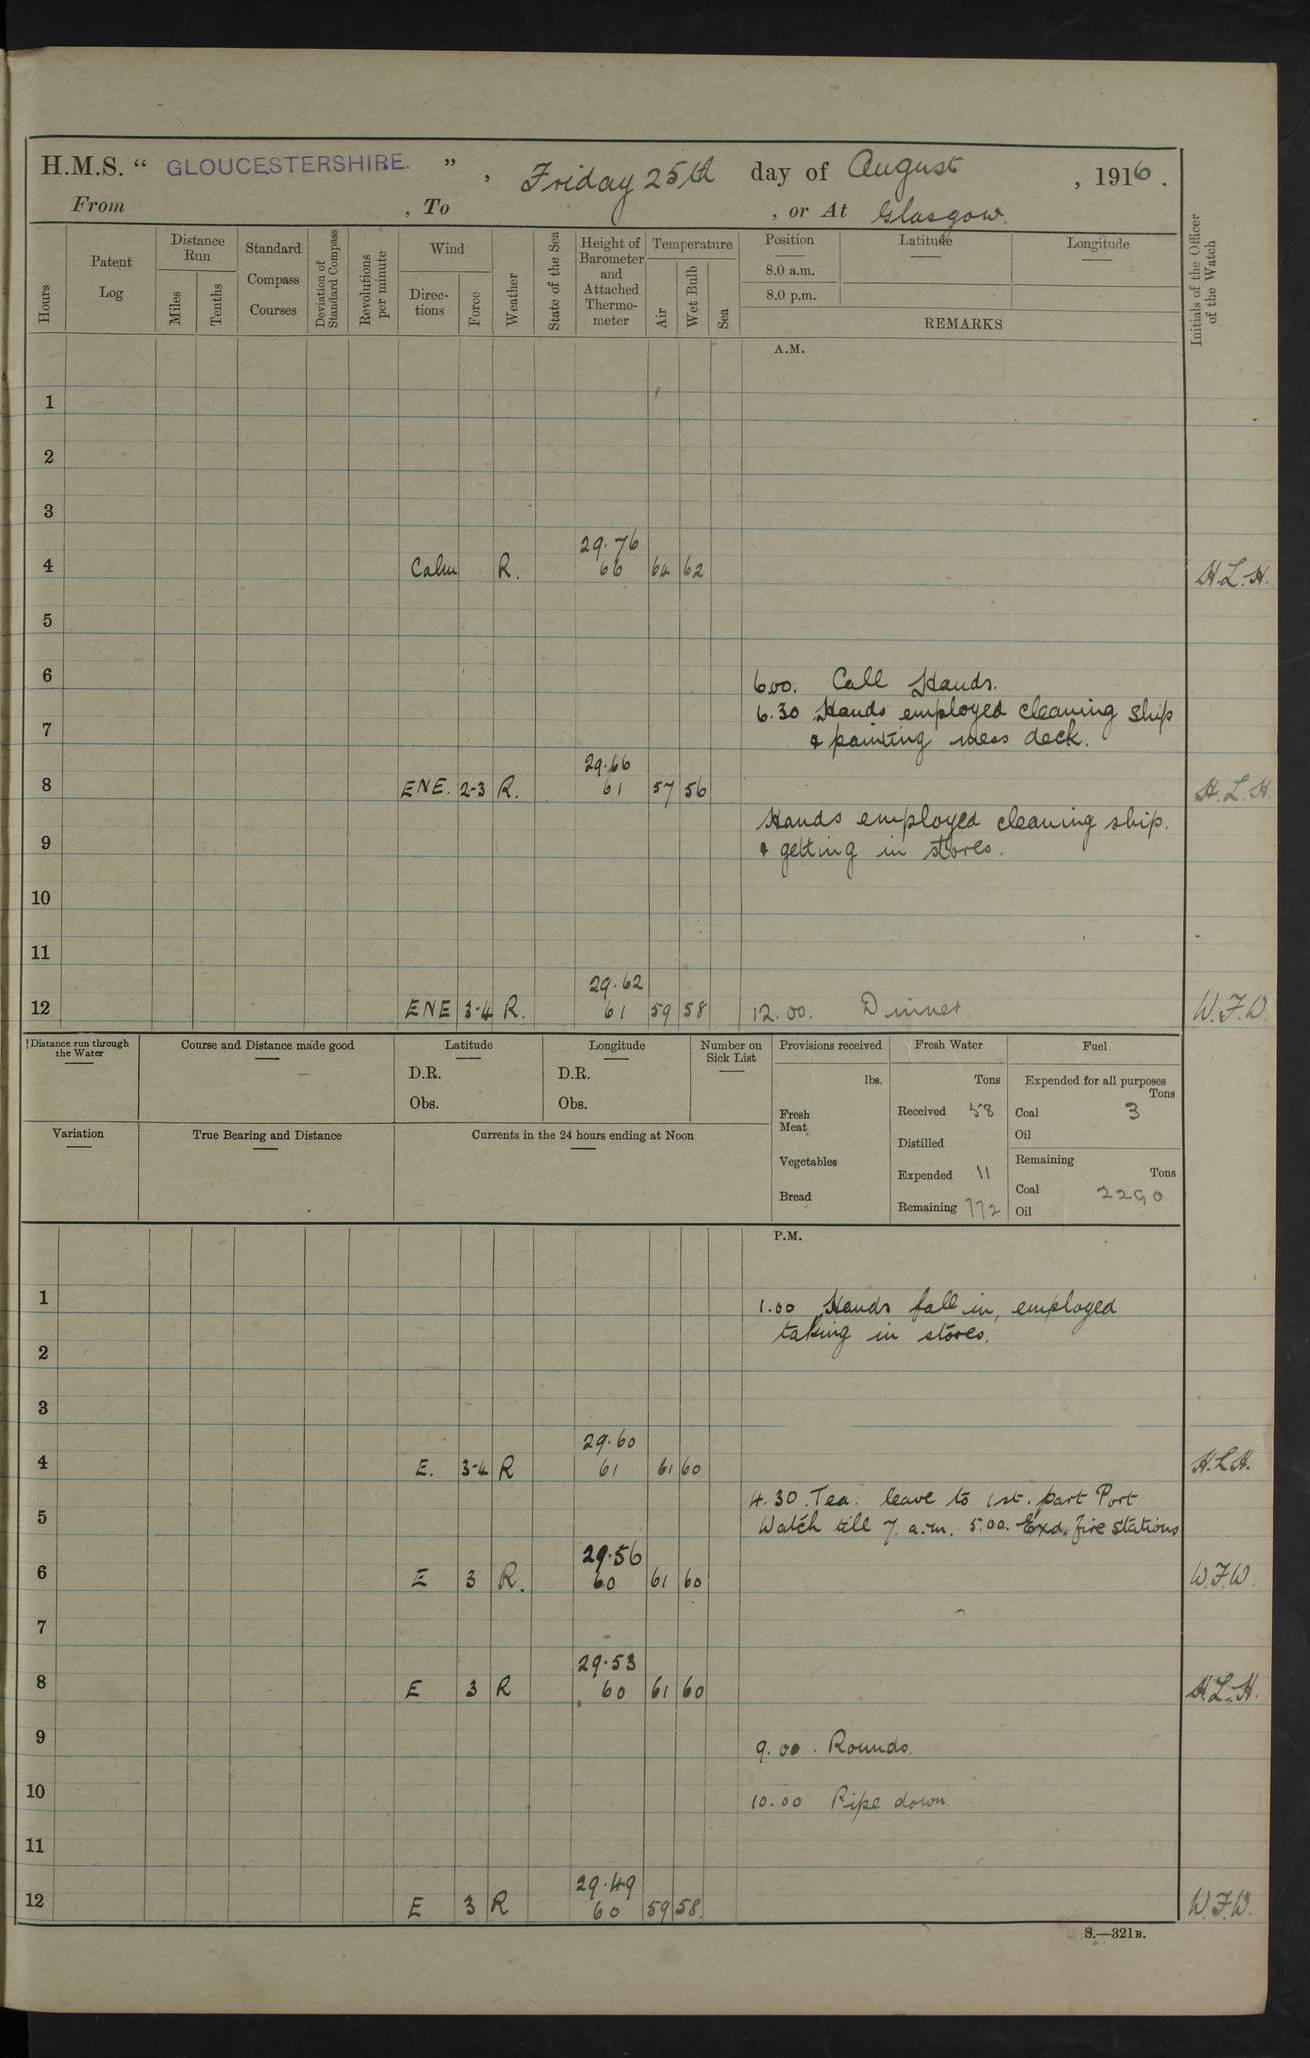 H.M.S. “ GLOUCESTERSHIRE. ” , Friday 25th day of August , 1916 .
From , To , or At Glasgow.
Hours
Patent Log
Distance Run
Miles
Tenths
Standard Compass Courses
Deviation of Standard Compass
Revolutions per minute
Wind
Direc-tions
Force
Weather
State of the Sea
Height of Barometer and Attached Thermo-meter
Temperature
Air
Wet Bulb
Sea
Position
8.0 a.m.
8.0 p.m.
Latitude
Longitude
REMARKS
Initials of the Officer of the Watch
A.M.
1
2
3
29.76
4 Calm R. 66 64 62 H.L.H.
5
6 6.00. Call Hands.
6.30 Hands employed cleaning ship
7 & painting mess deck.
29.66
8 ENE. 2-3 R. 61 57 56 H.L.H.
Hands employed cleaning ship.
9 & getting in stores.
10
11
29.62
12 ENE 3-4 R. 61 59 58 12.00. Dinner W.F.W.
Distance run through the Water
Course and Distance made good
Latitude
D.R.
Obs.
Longitude
D.R.
Obs.
Number on Sick List
Provisions received
lbs.
Fresh Meat
Vegetables
Bread
Fresh Water
Tons
Received 58
Distilled
Expended 11
Remaining 772
Fuel
Expended for all purposes
Tons
Coal 3
Oil
Remaining
Tons
Coal 2290
Oil
Variation
True Bearing and Distance
Currents in the 24 hours ending at Noon
P.M.
1 1.00 Hands fall in, employed
taking in stores.
2
3
29.60
4 E. 3-4 R 61 61 60 H.L.H.
4.30. Tea. leave to 1st. part Port
5 Watch till 7. a.m. 5.00. Exd. fire stations
29.56
6 E 3 R. 60 61 60 W.F.W.
7
29.53
8 E 3 R 60 61 60 H.L.H.
9 9.00. Rounds.
10 10.00 Pipe down.
11
29.49
12 E 3 R 60 59 58. W.F.W.
S.—321B.